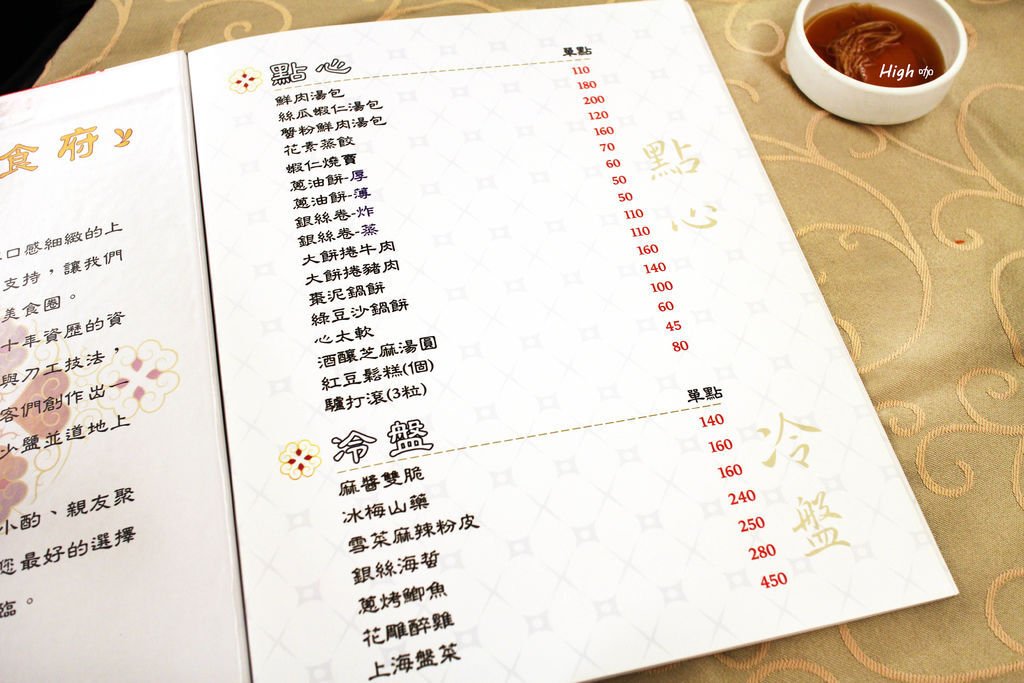 食府
口感細緻的上
支持，讓我們
美食圈。
十年資歷的資
與刀工技法，
客們創作出一
少鹽並道地上
小酌、親友聚
您最好的選擇
臨。
點心 單點
鮮肉湯包 110
絲瓜蝦仁湯包 180
蟹粉鮮肉湯包 200
花素蒸餃 120
蝦仁燒賣 160
蔥油餅-厚 70
蔥油餅-薄 60
銀絲卷-炸 50
銀絲卷-蒸 50
大餅捲牛肉 110
大餅捲豬肉 110
棗泥鍋餅 160
綠豆沙鍋餅 140
心太軟 100
酒釀芝麻湯圓 60
紅豆鬆糕(個) 45
驢打滾(3粒) 80
點心
冷盤 單點
麻醬雙脆 140
冰梅山藥 160
雪菜麻辣粉皮 160
銀絲海蜇 240
蔥烤鯽魚 250
花雕醉雞 280
上海盤菜 450
冷盤
High咖